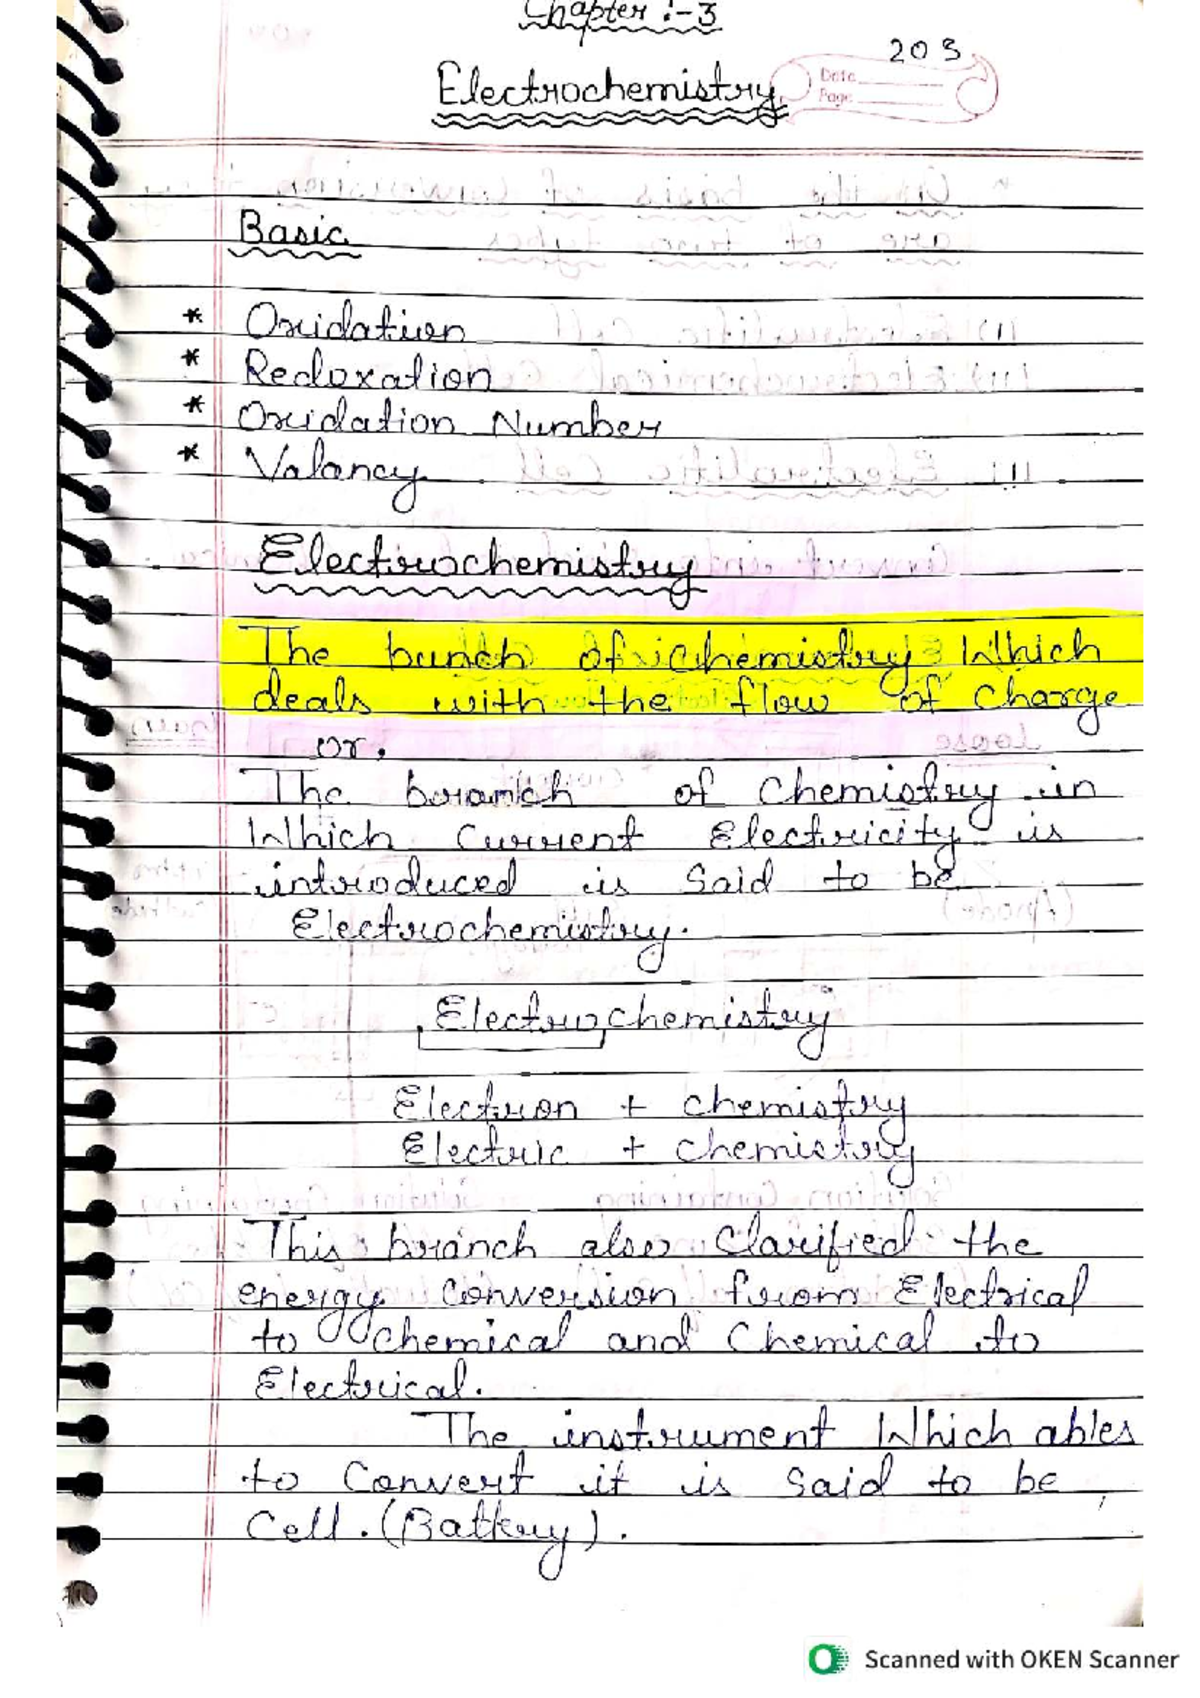 Chapter :- 3
203
Electrochemistry
Date
Page
Basic
* Oxidation
* Redoxation
* Oxidation Number
* Valancy
Electrochemistry
The branch of chemistry Which
deals with the flow of Charge
or.
The branch of Chemistry in
Which Current Electricity is
introduced is Said to be
Electrochemistry.
Electrochemistry
Electron + chemistry
Electric + chemistry
This branch also Clarified the
energy Conversion from Electrical
to chemical and Chemical to
Electrical.
The instrument Which ables
to Convert it is Said to be
Cell. (Battery).
Scanned with OKEN Scanner